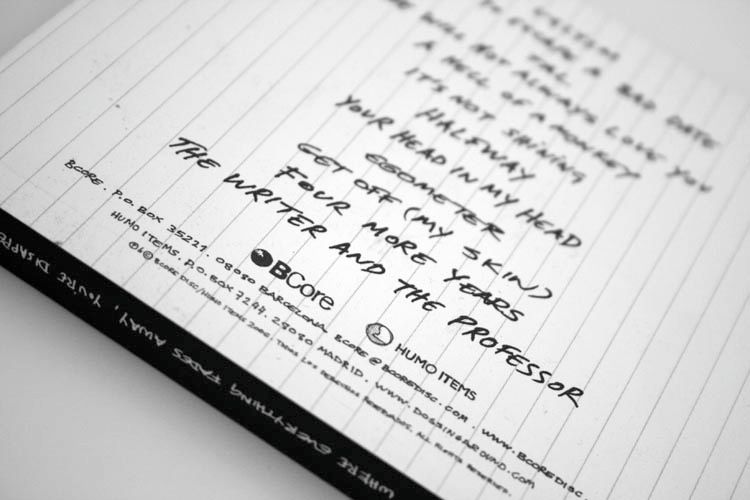 A BAD DATE
WILL NOT ALWAYS LOVE YOU
A HELL OF A MONKEY
IT'S NOT SHINING
HALFWAY
YOUR HEAD IN MY HEAD
EGOMETER
GET OFF (MY SKIN)
FOUR MORE YEARS
THE WRITER AND THE PROFESSOR
BCore
HUMO ITEMS
BCORE. P.O. BOX 35221. 08080 BARCELONA BCORE@BCOREDISC.COM. WWW.BCOREDISC.
HUMO ITEMS. P.O. BOX 7294. 28080 MADRID. WWW.DOGGINGAROUND.COM
BCORE DISC/HUMO ITEMS TODOS LOS DERECHOS RESERVADOS. ALL RIGHTS RESERVED.
WHERE EVERYTHING FADES AWAY, YOU'RE DISAPPE